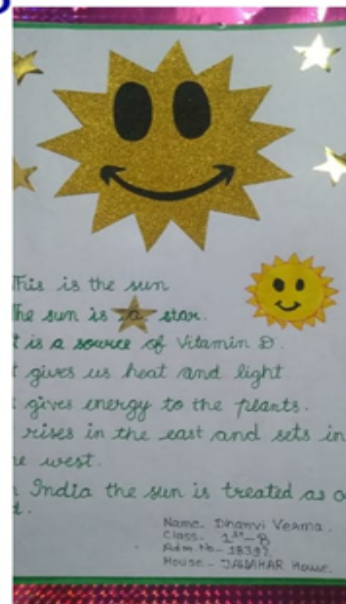 This is the sun
The sun is a star.
t is a source of Vitamin D.
t gives us heat and light
t gives energy to the plants.
rises in the east and sets in
he west.
n India the sun is treated as a
d.
Name- Dhanvi Verma.
Class- 1st-B
Adm. No- 18392
House- JAWAHAR House.